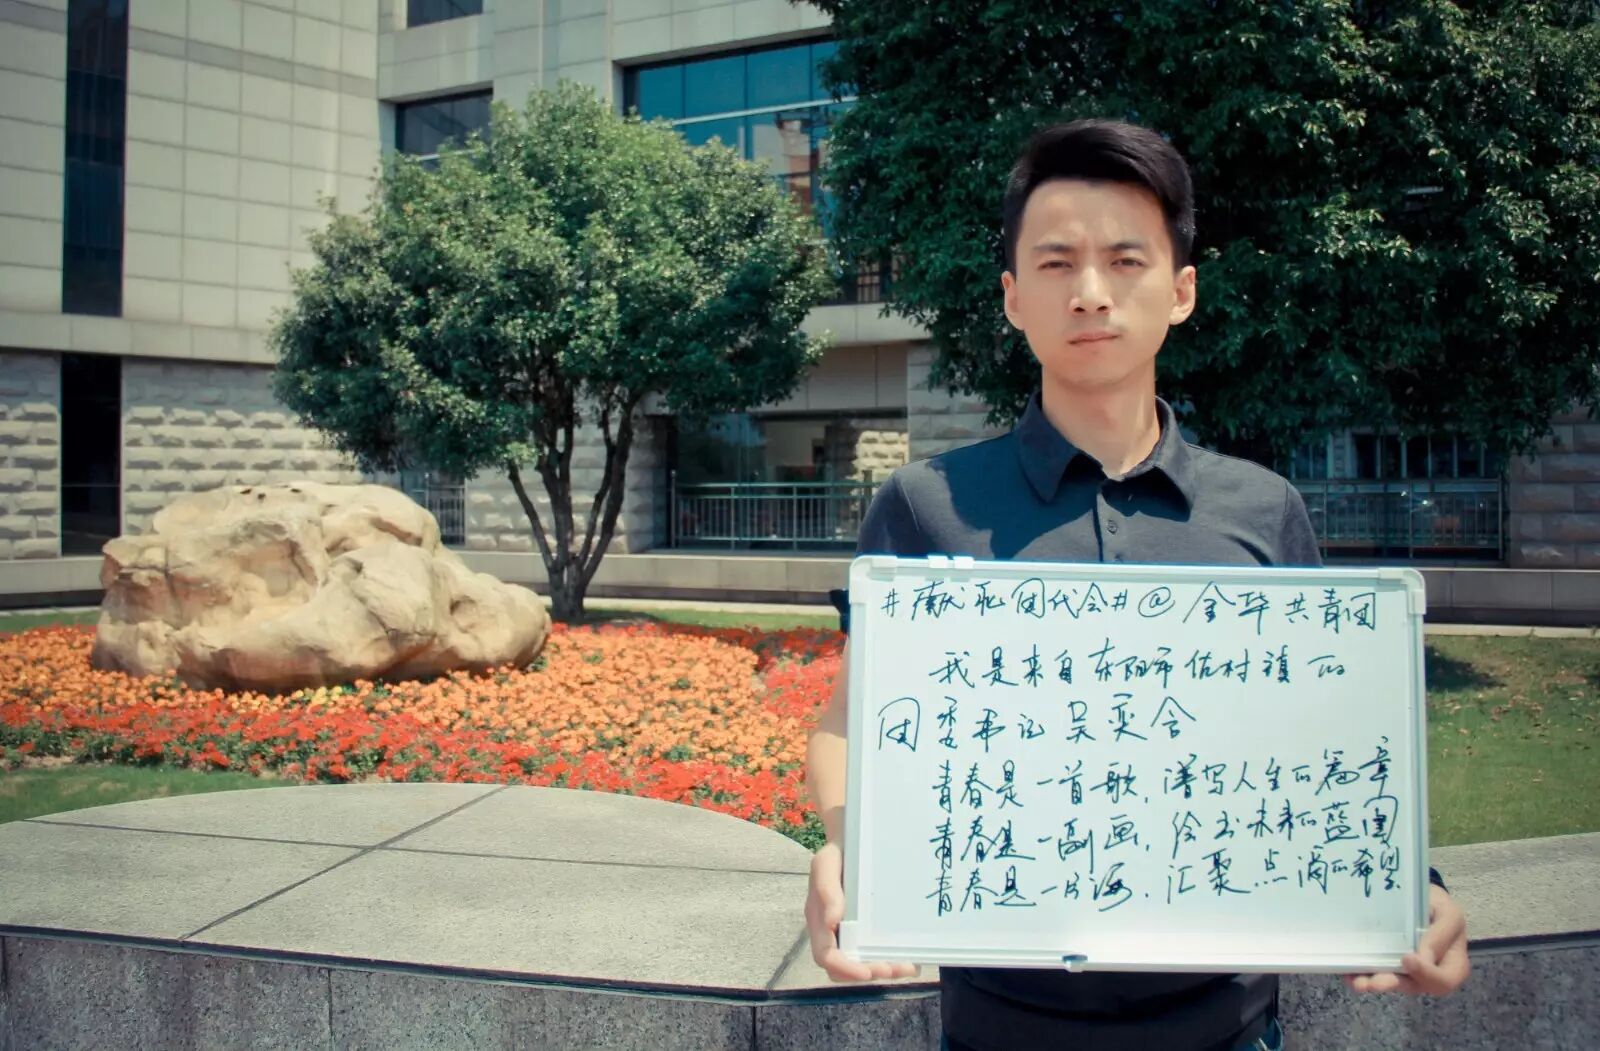 #献礼团代会#@金华共青团
我是来自东阳市佐村镇的
团委书记吴奕含
青春是一首歌，谱写人生的篇章
青春是一副画，绘出未来的蓝图
青春是一片海，汇聚点滴的希望